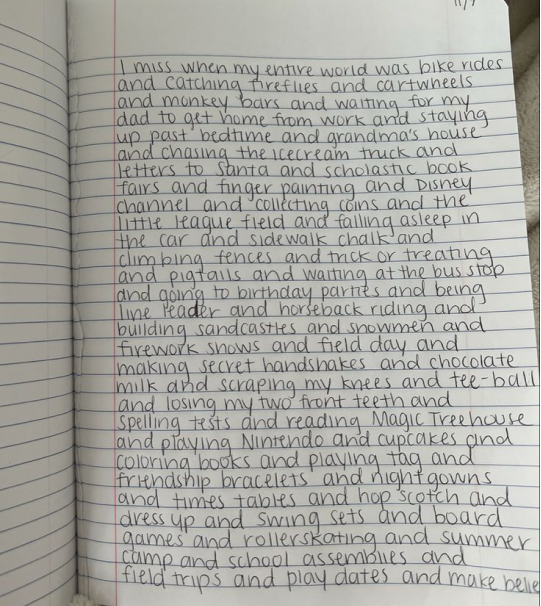 11/7
I miss when my entire world was bike rides
and catching fireflies and cartwheels
and monkey bars and waiting for my
dad to get home from work and staying
up past bedtime and grandma's house
and chasing the icecream truck and
letters to Santa and scholastic book
fairs and finger painting and Disney
channel and collecting coins and the
little league field and falling asleep in
the car and sidewalk chalk and
climbing fences and trick or treating
and pigtails and waiting at the bus stop
and going to birthday parties and being
line leader and horseback riding and
building sandcastles and snowmen and
firework shows and field day and
making secret handshakes and chocolate
milk and scraping my knees and tee-ball
and losing my two front teeth and
spelling tests and reading Magic Treehouse
and playing Nintendo and cupcakes and
coloring books and playing tag and
friendship bracelets and nightgowns
and times tables and hop scotch and
dress up and swing sets and board
games and rollerskating and summer
camp and school assemblies and
field trips and play dates and make belie